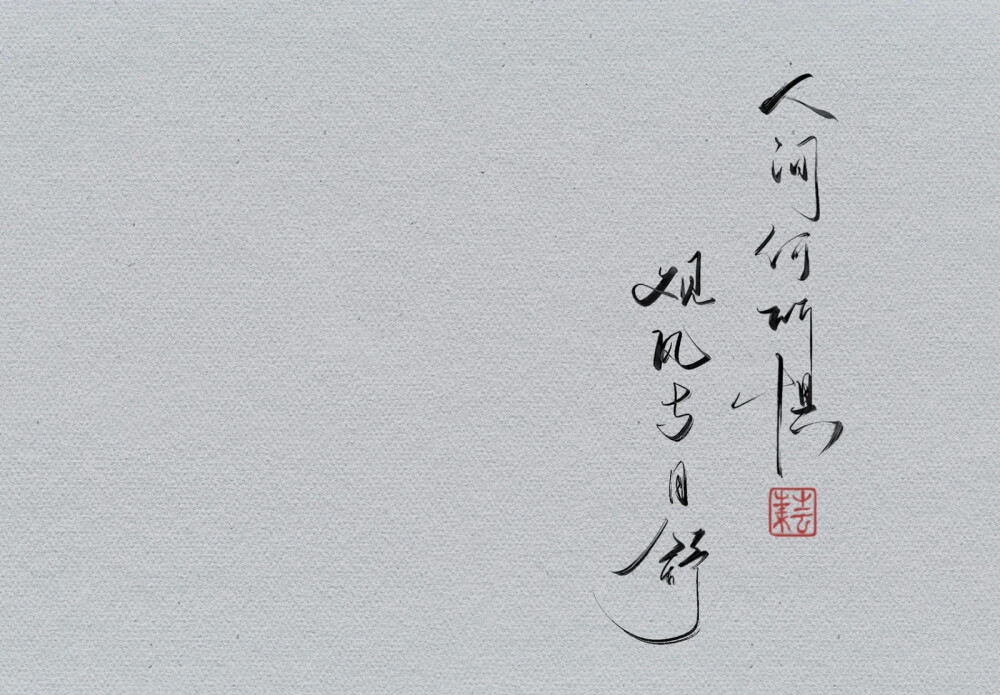 人间何所惧
观风与月舒